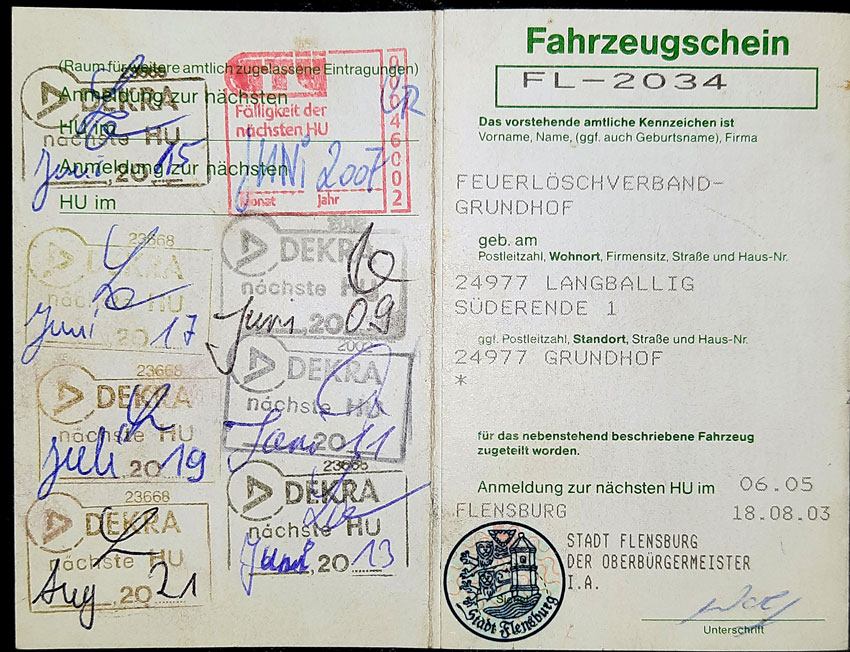 (Raum für weitere amtlich zugelassene Eintragungen)
Anmeldung zur nächsten
HU im
Anmeldung zur nächsten
HU im
23668
DEKRA
nächste HU
Juni, 20 15
Fälligkeit der
nächsten HU
JUNI 2007
Monat Jahr
00046002
23668
DEKRA
nächste HU
Juni, 20 17
DEKRA
nächste HU
Juni, 20 09
23668
DEKRA
nächste HU
Juli, 20 19
2002
DEKRA
nächste HU
20 11
23668
DEKRA
nächste HU
Aug, 20 21
23668
DEKRA
nächste HU
Juni, 20 13
Fahrzeugschein
FL-2034
Das vorstehende amtliche Kennzeichen ist
Vorname, Name, (ggf. auch Geburtsname), Firma
FEUERLÖSCHVERBAND-
GRUNDHOF
geb. am
Postleitzahl, Wohnort, Firmensitz, Straße und Haus-Nr.
24977 LANGBALLIG
SÜDERENDE 1
ggf. Postleitzahl, Standort, Straße und Haus-Nr.
24977 GRUNDHOF
*
für das nebenstehend beschriebene Fahrzeug
zugeteilt worden.
Anmeldung zur nächsten HU im 06.05
FLENSBURG 18.08.03
STADT FLENSBURG
DER OBERBÜRGERMEISTER
I.A.
Stadt Flensburg
Unterschrift